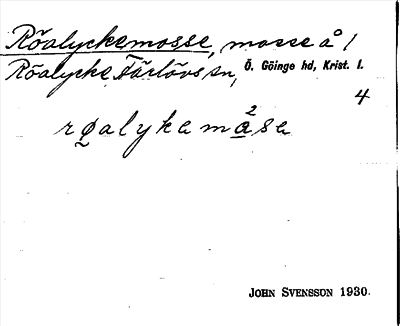 Röalyckemosse, mosse å /
Röalycke, Färlövs sn, Ö. Göinge hd, Krist. l.
4
røalykamå²sa
JOHN SVENSSON 1930.